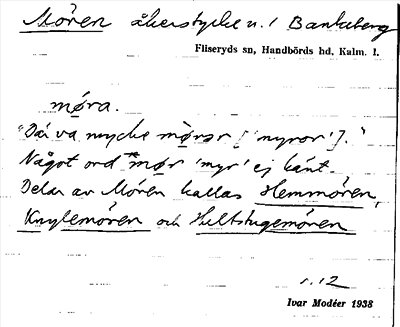 Mören åkerstycke n. i Bankeberg
Fliseryds sn, Handbörds hd, Kalm. l.
møra.
"Där va mycke mørər ['myror']."
Något ord *mør 'myr' ej känt.
Delar av Mören kallas Hemmören,
Knylemören och Hultstugemören
s. 12
Ivar Modéer 1938